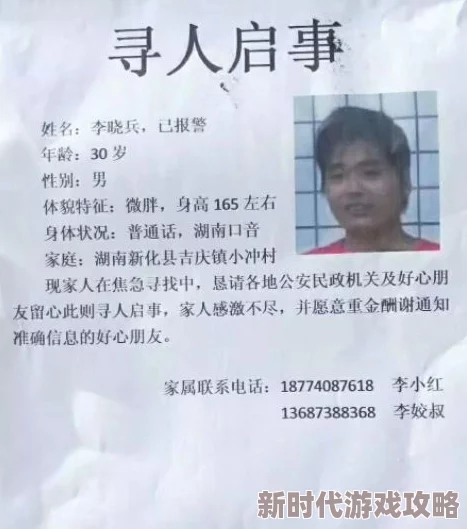 寻人启事
姓名：李晓兵，已报警
年龄：30 岁
性别：男
体貌特征：微胖，身高 165 左右
身体状况：普通话，湖南口音
家庭：湖南新化县吉庆镇小冲村
现家人在焦急寻找中，恳请各地公安民政机关及好心朋
友留心此则寻人启事，家人感激不尽，并愿意重金酬谢通知
准确信息的好心朋友。
家属联系电话：18774087618 李小红
13687388368 李姣叔
新时代游戏攻略